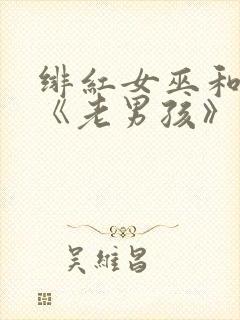 绯紅女巫和
《老男孩》
吴維昌